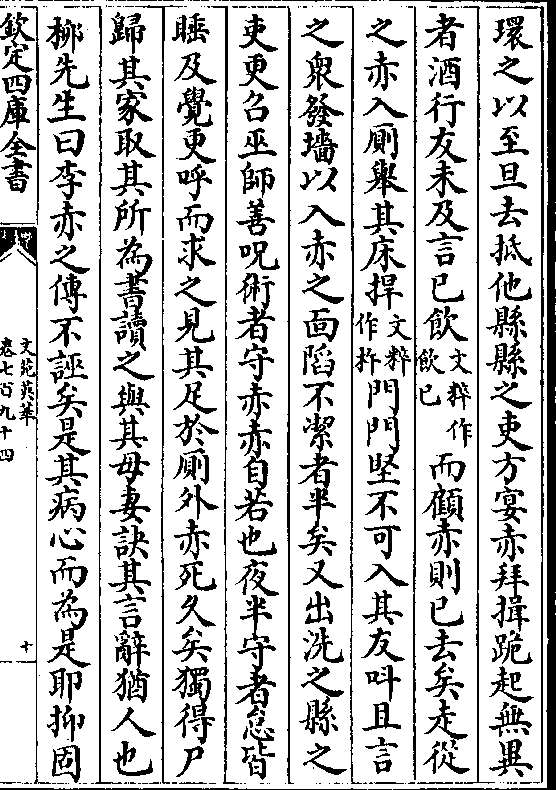 環之以至旦去抵他縣縣之吏方宴赤拜揖跪起無異
者酒行友未及言已飲文粹作飲已而顧赤則已去矣走從
之赤入厠舉其床捍文粹作杵門門堅不可入其友叫且言
之衆發墻以入赤之面陷不潔者半矣又出洗之縣之
吏更召巫師善呪術者守赤赤自若也夜半守者怠皆
睡及覺更呼而求之見其足於厠外赤死久矣獨得尸
歸其家取其所為書讀之與其母妻訣其言辭猶人也
栁先生曰李赤之傳不誣矣是其病心而為是耶抑固
欽定四庫全書
文苑英華
卷七百九十四
十